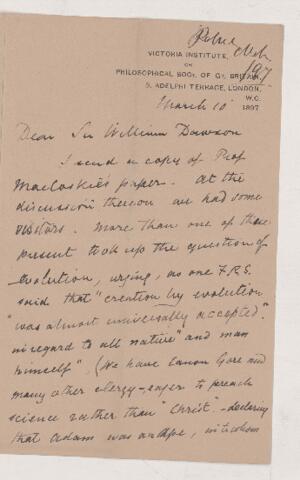 VICTORIA INSTITUTE,
OR
PHILOSOPHICAL SOCY. OF GT. BRITAIN,
9, ADELPHI TERRACE, LONDON,
W.C.
March 10 1897
Dear Sir William Dawson
I send a copy of Prof
Macloskie's paper. At the
discussion thereon we had some
visitors. More than one of those
present took up the question of
Evolution, urging, as one F.R.S.
said that "creation by evolution
"was almost universally accepted"
in regard to all nature" and man
himself" (We have Canon Gore and
many other clergy - eager to preach
science rather than Christ" - declaring
that Adam was an Ape, into whom